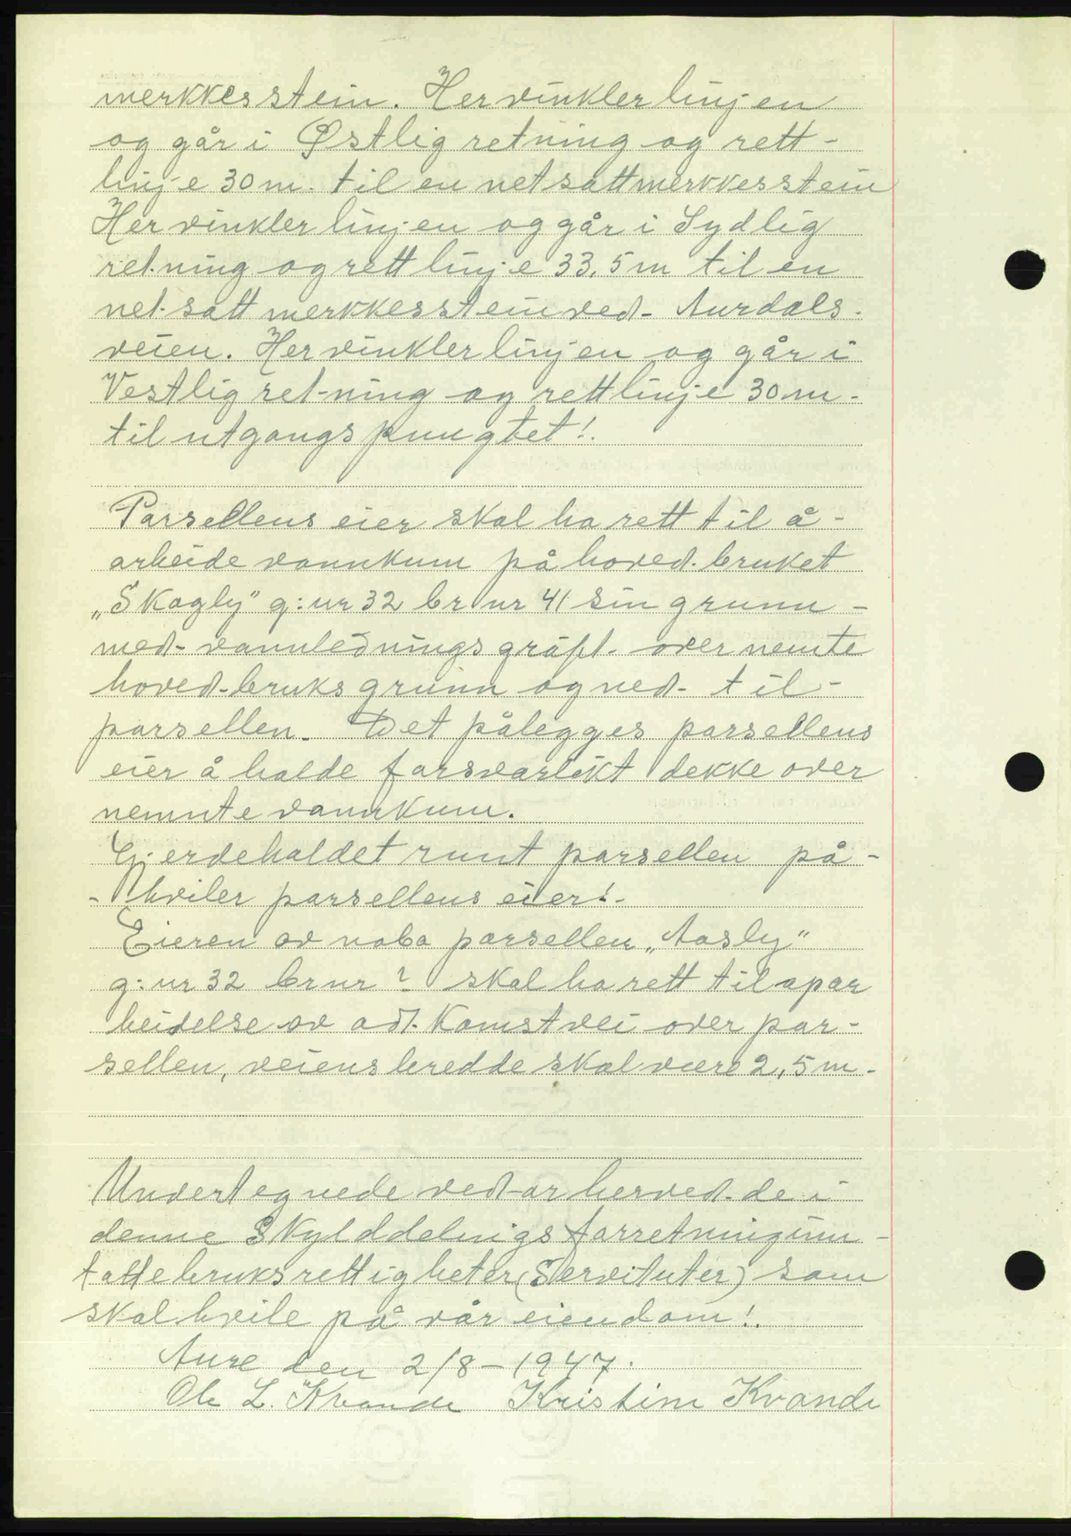 merkkesstein. Her vinkler linjen
og går i Østlig retning og rett-
linje 30 m. til en netsatt merkkesstein
Her vinkler linjen og går i Sydlig
retning og rett linje 33,5 m til en
netsatt merkkesstein ved- Aurdals.
veien. Her vinkler linjen og går i
Vestlig retning og rettlinje 30 m-
til utgangspungtet!.
Parsellens eier skal ha rett til å-
arbeide vannkum på hoved.bruket
„Skogly" g:nr 32 br nr 41 sin grunn-
med- vannlednings gräft. over nemte
hoved-bruks grunn og ned- til-
parsellen. Det pålegges parsellens
eier å halde farsvarlikt dekke over
nemnte vannkum.
Gjerdehaldet runt parsellen på-
-hviler parsellens eier!-
Eieren av nabo parsellen „Aasly"
g:nr 32 br nr ? skal ha rett til apar
beidelse av adt. Komst vei over par-
sellen, veiens bredde skal være 2,5 m-
Undertegnede vedtar herved. de i
denne Skylddelnigs farretning inn-
tatte bruksrettigheter (Servituter) som
skal hvile på vår eiendom!.
Aure den 2/8-1947.
Ole L. Kvande Kristine Kvande